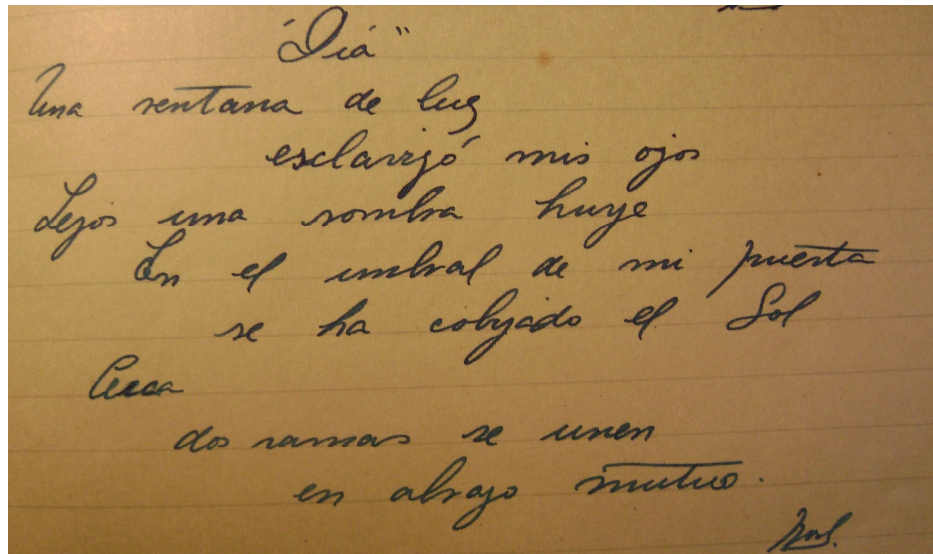 "Día"
Una ventana de luz
esclarizó mis ojos
Lejos una sombra huye
En el umbral de mi puerta
se ha cobijado el Sol
Cerca
dos ramas se unen
en abrazo mutuo.